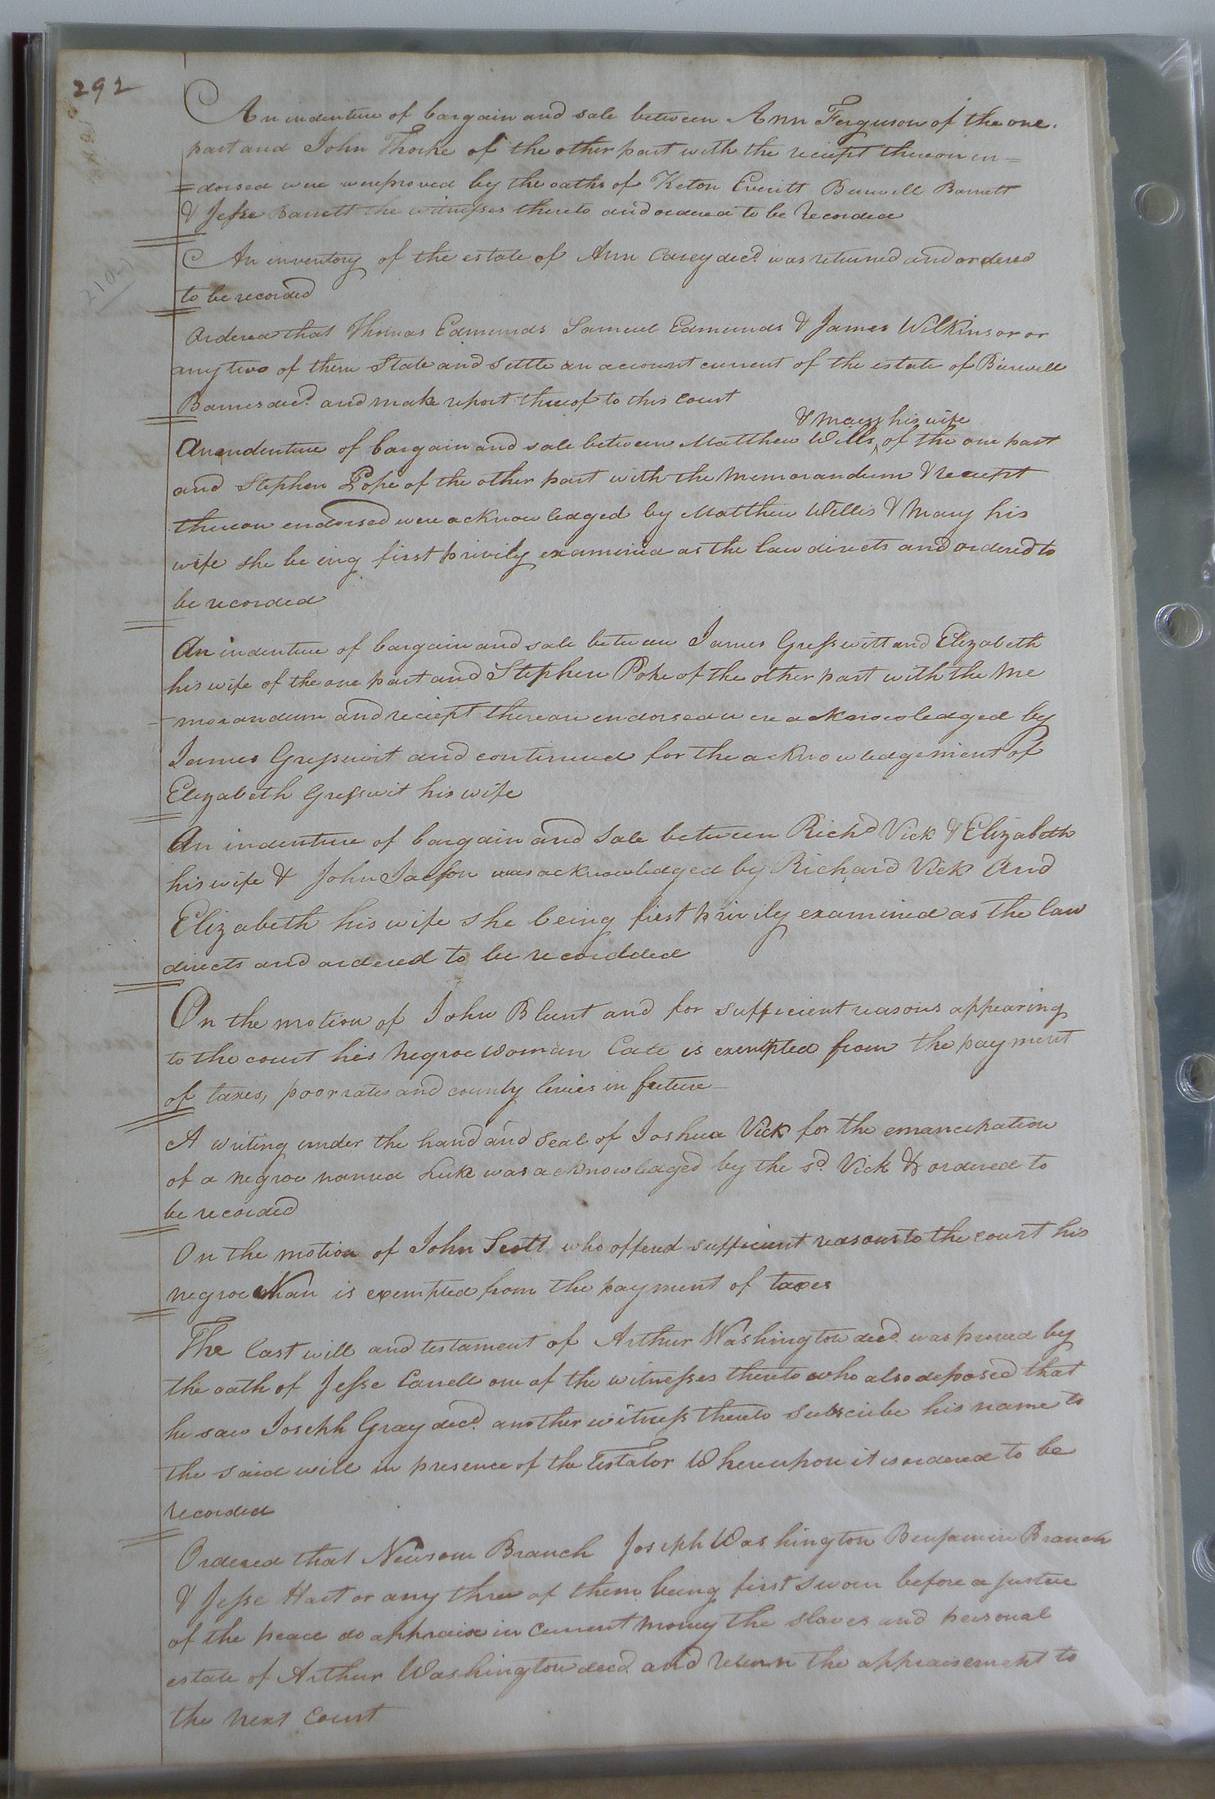 292
An indenture of bargain and sale between Ann Ferguson of the one
part and John Thorke of the other part with the reciept thereon in=
=dorsed were wereproved by the oaths of Keton Everitt Burwell Barrett
& Jesse Barrett the witnesses thereto and ordered to be recorded
An inventory of the estate of Ann Carey decd. was returned and ordered
to be recorded
Ordered that Thomas Edmunds Samuel Edmunds & James Wilkinson or
any two of them State and Settle an account current of the estate of Burwell
Barnes decd. and make report thereof to this court
& Mary his wife
An endenture of bargain and sale between Matthew Wills, of the one part
and Stephen Pope of the other part with the Memorandum & reciept
thereon endorsed were acknowledged by Matthew Wills & Mary his
wife she being first privily examined as the law directs and ordered to
be recorded
An indenture of bargain and sale between James Gresswitt and Elizabeth
his wife of the one part and Stephen Pope of the other part with the Me
morandum and reciept thereon endorsed were acknowledged by
James Gresswit and continued for the acknowledgement of
Elizabeth Gresswit his wife
An indenture of bargain and Sale between Richd. Vick & Elizabeth
his wife & John was acknowledged by Richard Vick And
Elizabeth his wife she being first privily examined as the law
directs and ordered to be recordded
On the motion of John Blunt and for sufficient reasons appearing
to the court his Negroe woman Cate is exempted from the payment
of taxes, poor rates and county levies in future
A writing under the hand and Seal of Joshua Vick for the emancipation
of a negroe named Luke was acknowledged by the sd. Vick & ordered to
be recorded
On the motion of John Scott who offered sufficient reasons to the court his
negroe Nan is exempted from the payment of taxes
The last will and testament of Arthur Washington decd. was proved by
the oath of Jesse Carrell one of the witnesses thereto who also deposed that
he saw Joseph Gray decd. another witness thereto Subscribe his name to
the said will in presence of the Testator Whereupon it is ordered to be
recorded
Ordered that Newsom Branch Joseph Washington Benjamin Branch
& Jesse Hart or any three of them being first sworn before a justice
of the peace do appraise in current money the slaves and personal
estate of Arthur Washington decd. and return the appraisement to
the next court